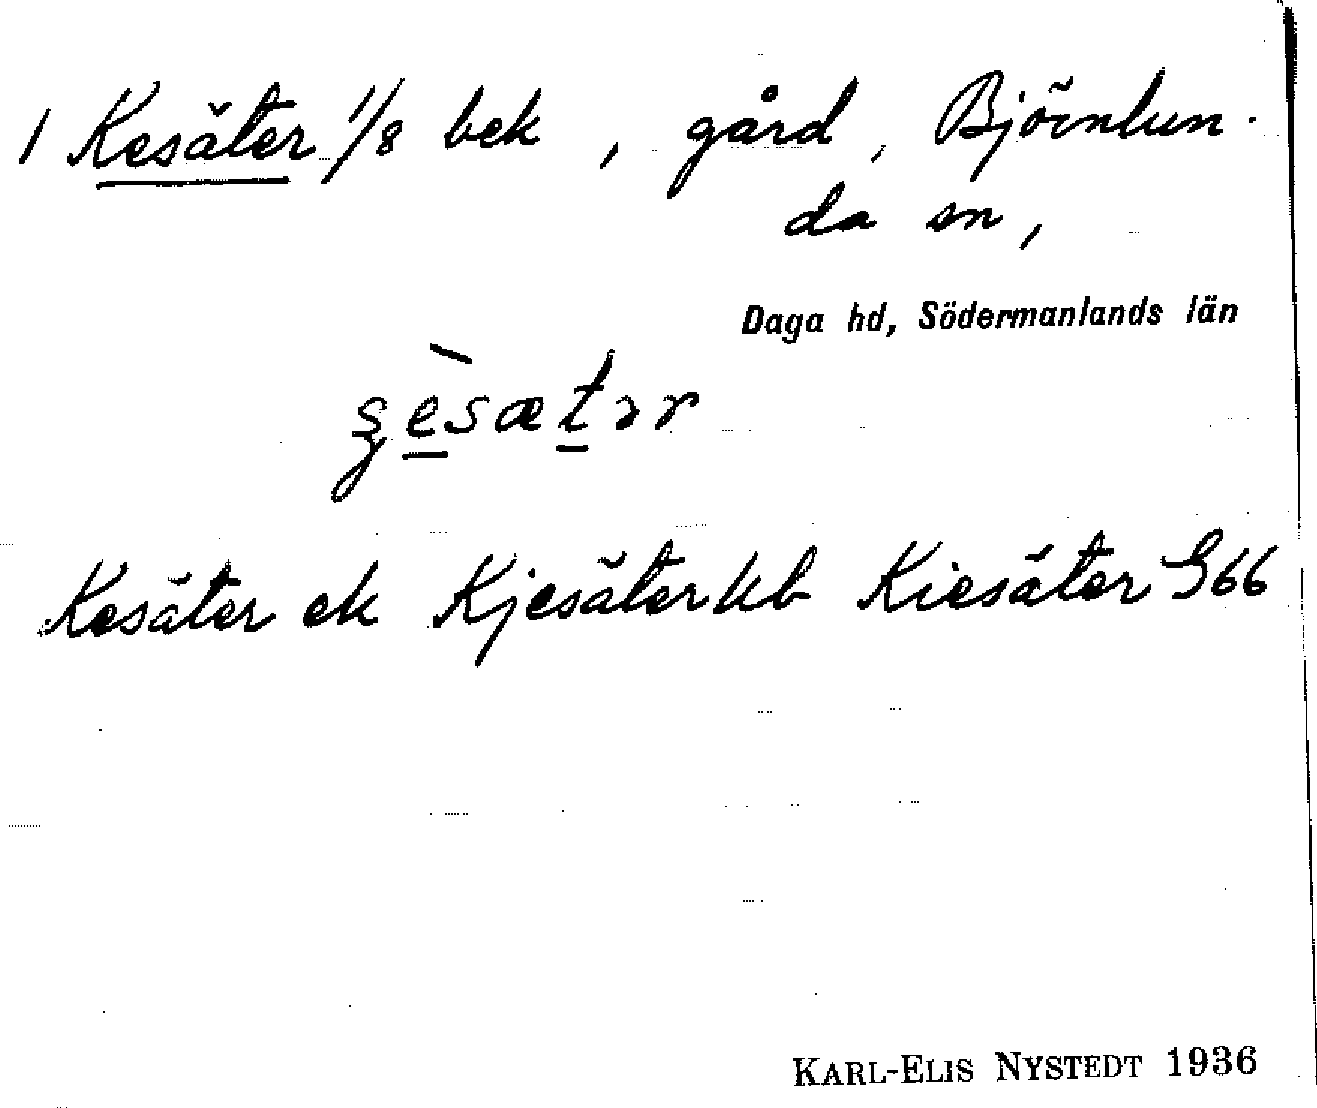 1 Kesäter 1/8 bek, gård, Björnlun-
da sn,
Daga hd, Södermanlands län
Kesäter ek Kjesäter kb Kiesäter G66
KARL-ELIS NYSTEDT 1936